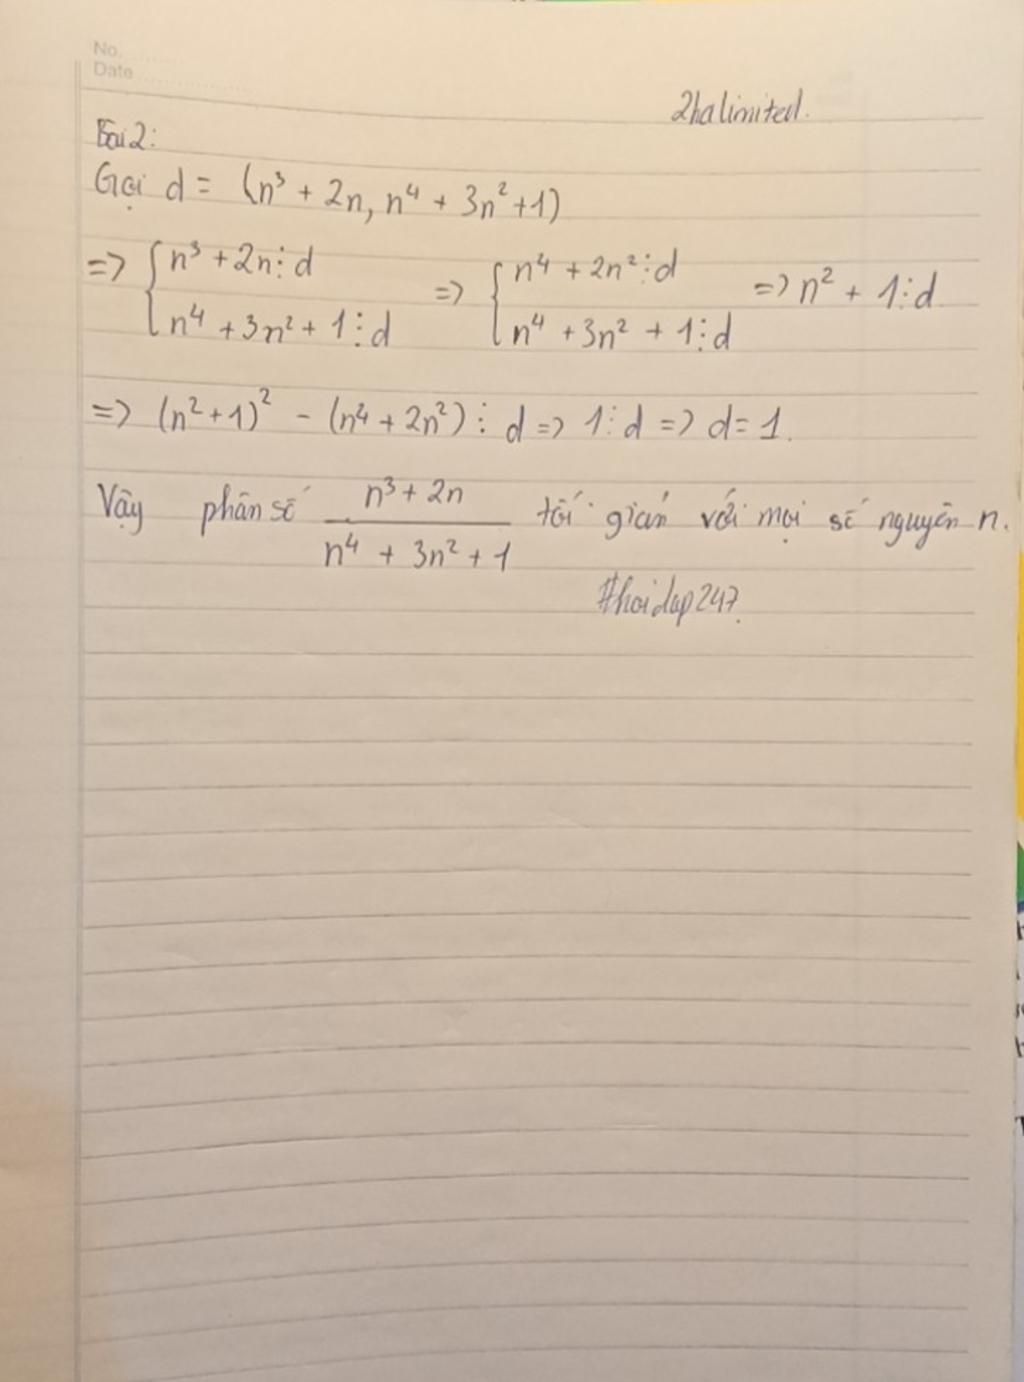 No.
Date
2halimited.
Bài 2:
Gọi d = (n³ + 2n, n⁴ + 3n² + 1)
=> { n³ + 2n ⋮ d => { n⁴ + 2n² ⋮ d => n² + 1 ⋮ d
n⁴ + 3n² + 1 ⋮ d n⁴ + 3n² + 1 ⋮ d
=> (n² + 1)² - (n⁴ + 2n²) ⋮ d => 1 ⋮ d => d = 1.
Vậy phân số n³ + 2n / n⁴ + 3n² + 1 tối giản với mọi số nguyên n.
#hoidap247.